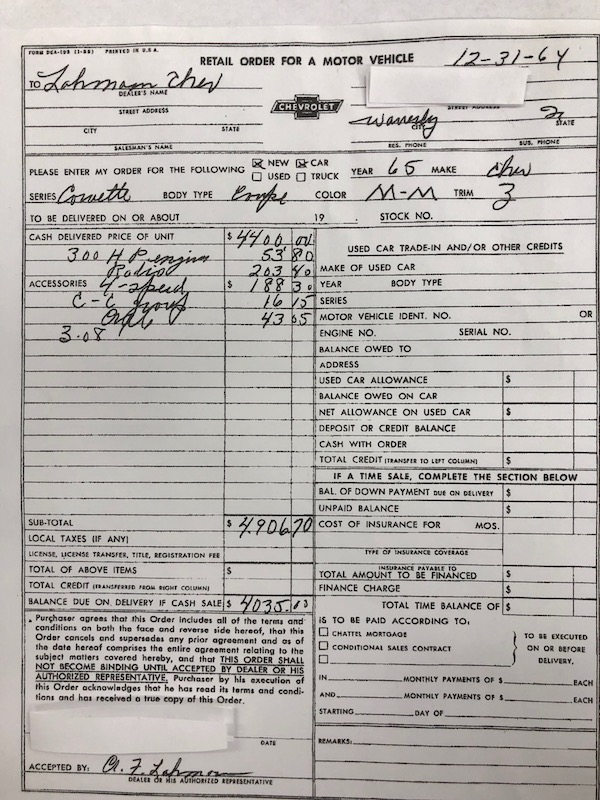 FORM DEA-193 (1-55) PRINTED IN U.S.A.
RETAIL ORDER FOR A MOTOR VEHICLE 12-31-64
TO Lohmann Chev
DEALER'S NAME
CHEVROLET
STREET ADDRESS STREET ADDRESS
Waverly
CITY STATE CITY STATE
SALESMAN'S NAME RES. PHONE BUS. PHONE
PLEASE ENTER MY ORDER FOR THE FOLLOWING ☒ NEW ☒ CAR YEAR 65 MAKE Chev
☐ USED ☐ TRUCK
SERIES Corvette BODY TYPE Coupe COLOR M-M TRIM 3
TO BE DELIVERED ON OR ABOUT 19 . STOCK NO.
CASH DELIVERED PRICE OF UNIT $ 4400 00
300 H P engine 53 80
Radio 203 40
ACCESSORIES 4-speed $ 188 30
C-C group 16 15
43 05
3.08
SUB-TOTAL $ 4,906 70
LOCAL TAXES (IF ANY)
LICENSE, LICENSE TRANSFER, TITLE, REGISTRATION FEE
TOTAL OF ABOVE ITEMS $
TOTAL CREDIT (TRANSFERRED FROM RIGHT COLUMN)
BALANCE DUE ON DELIVERY IF CASH SALE $ 4035.00
Purchaser agrees that this Order includes all of the terms and
conditions on both the face and reverse side hereof, that this
Order cancels and supersedes any prior agreement and as of
the date hereof comprises the entire agreement relating to the
subject matters covered hereby, and that THIS ORDER SHALL
NOT BECOME BINDING UNTIL ACCEPTED BY DEALER OR HIS
AUTHORIZED REPRESENTATIVE. Purchaser by his execution of
this Order acknowledges that he has read its terms and condi-
tions and has received a true copy of this Order.
DATE
ACCEPTED BY: A. F. Lohmann
DEALER OR HIS AUTHORIZED REPRESENTATIVE
USED CAR TRADE-IN AND/OR OTHER CREDITS
MAKE OF USED CAR
YEAR BODY TYPE
SERIES
MOTOR VEHICLE IDENT. NO. OR
ENGINE NO. SERIAL NO.
BALANCE OWED TO
ADDRESS
USED CAR ALLOWANCE $
BALANCE OWED ON CAR
NET ALLOWANCE ON USED CAR $
DEPOSIT OR CREDIT BALANCE
CASH WITH ORDER
TOTAL CREDIT (TRANSFER TO LEFT COLUMN) $
IF A TIME SALE, COMPLETE THE SECTION BELOW
BAL. OF DOWN PAYMENT DUE ON DELIVERY $
UNPAID BALANCE $
COST OF INSURANCE FOR MOS.
TYPE OF INSURANCE COVERAGE
INSURANCE PAYABLE TO
TOTAL AMOUNT TO BE FINANCED $
FINANCE CHARGE $
TOTAL TIME BALANCE OF $
IS TO BE PAID ACCORDING TO:
☐ CHATTEL MORTGAGE
☐ CONDITIONAL SALES CONTRACT
☐
TO BE EXECUTED
ON OR BEFORE
DELIVERY,
IN MONTHLY PAYMENTS OF $ EACH
AND MONTHLY PAYMENTS OF $ EACH
STARTING DAY OF
REMARKS: